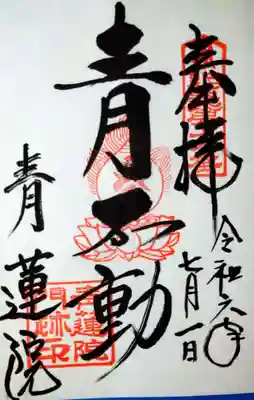 奉拝
令和六年
七月一日
青不動
青蓮院
青蓮院
門跡印